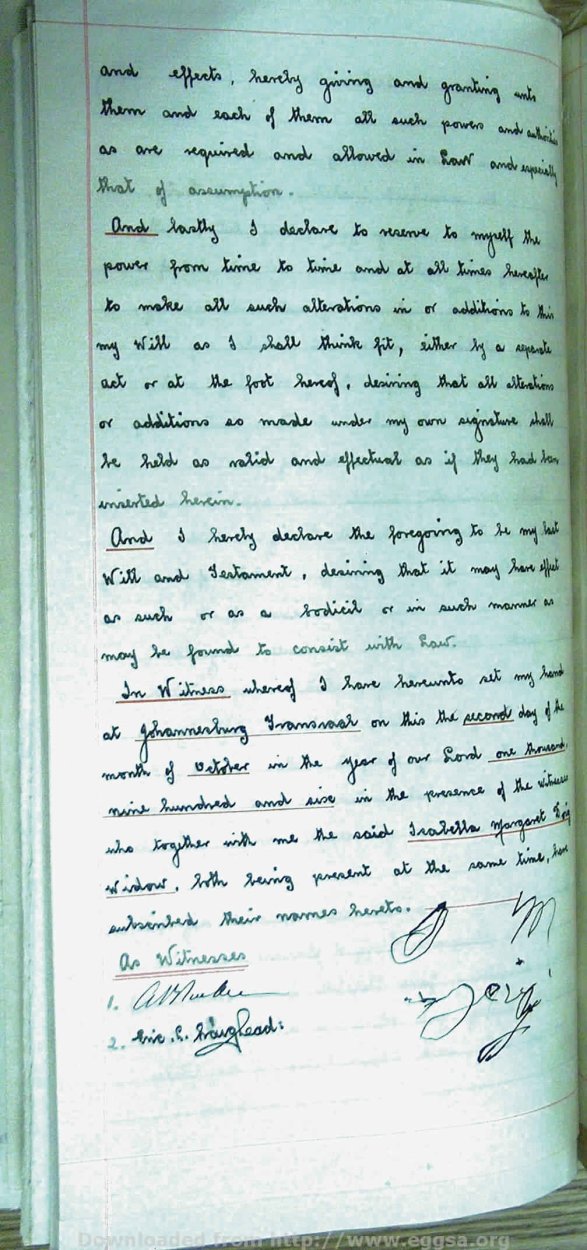 and effects, hereby giving and granting unto
them and each of them all such powers and authorities
as are required and allowed in Law and especially
that of assumption.
And lastly I declare to reserve to myself the
power from time to time and at all times hereafter
to make all such alterations in or additions to this
my Will as I shall think fit, either by a separate
act or at the foot hereof, desiring that all alterations
or additions so made under my own signature shall
be held as valid and effectual as if they had been
inserted herein.
And I hereby declare the foregoing to be my last
Will and Testament, desiring that it may have effect
as such or as a Codicil or in such manner as
may be found to consist with Law.
In Witness whereof I have hereunto set my hand
at Johannesburg Transvaal on this the second day of the
month of October in the year of our Lord one thousand
nine hundred and six in the presence of the witnesses
who together with me the said Isabella Margaret
Widow, both being present at the same time, have
subscribed their names hereto.
As Witnesses
1.
2. Eric. L.
Downloaded from http://www.eggsa.org